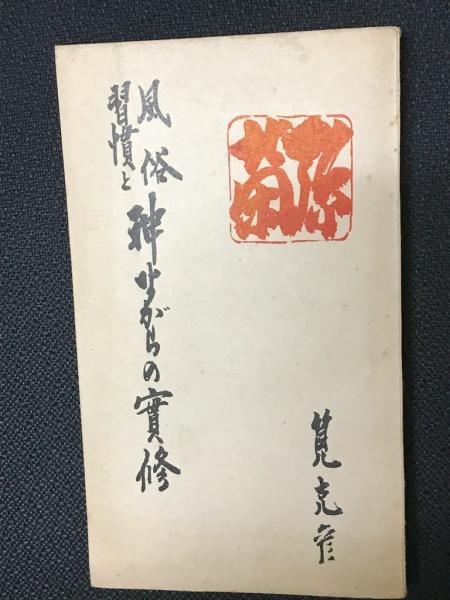 弥栄
筧克彦
風俗
習慣と
神ながらの實修